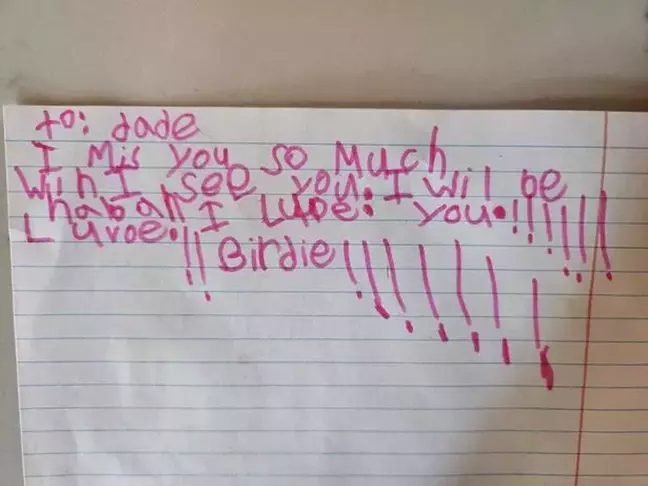 to: dade
I Mis you so Much
Wih I see you. I wil be
habah I Luve. you.!!!!!!
Luvoe.!! Birdie!!!!!!!